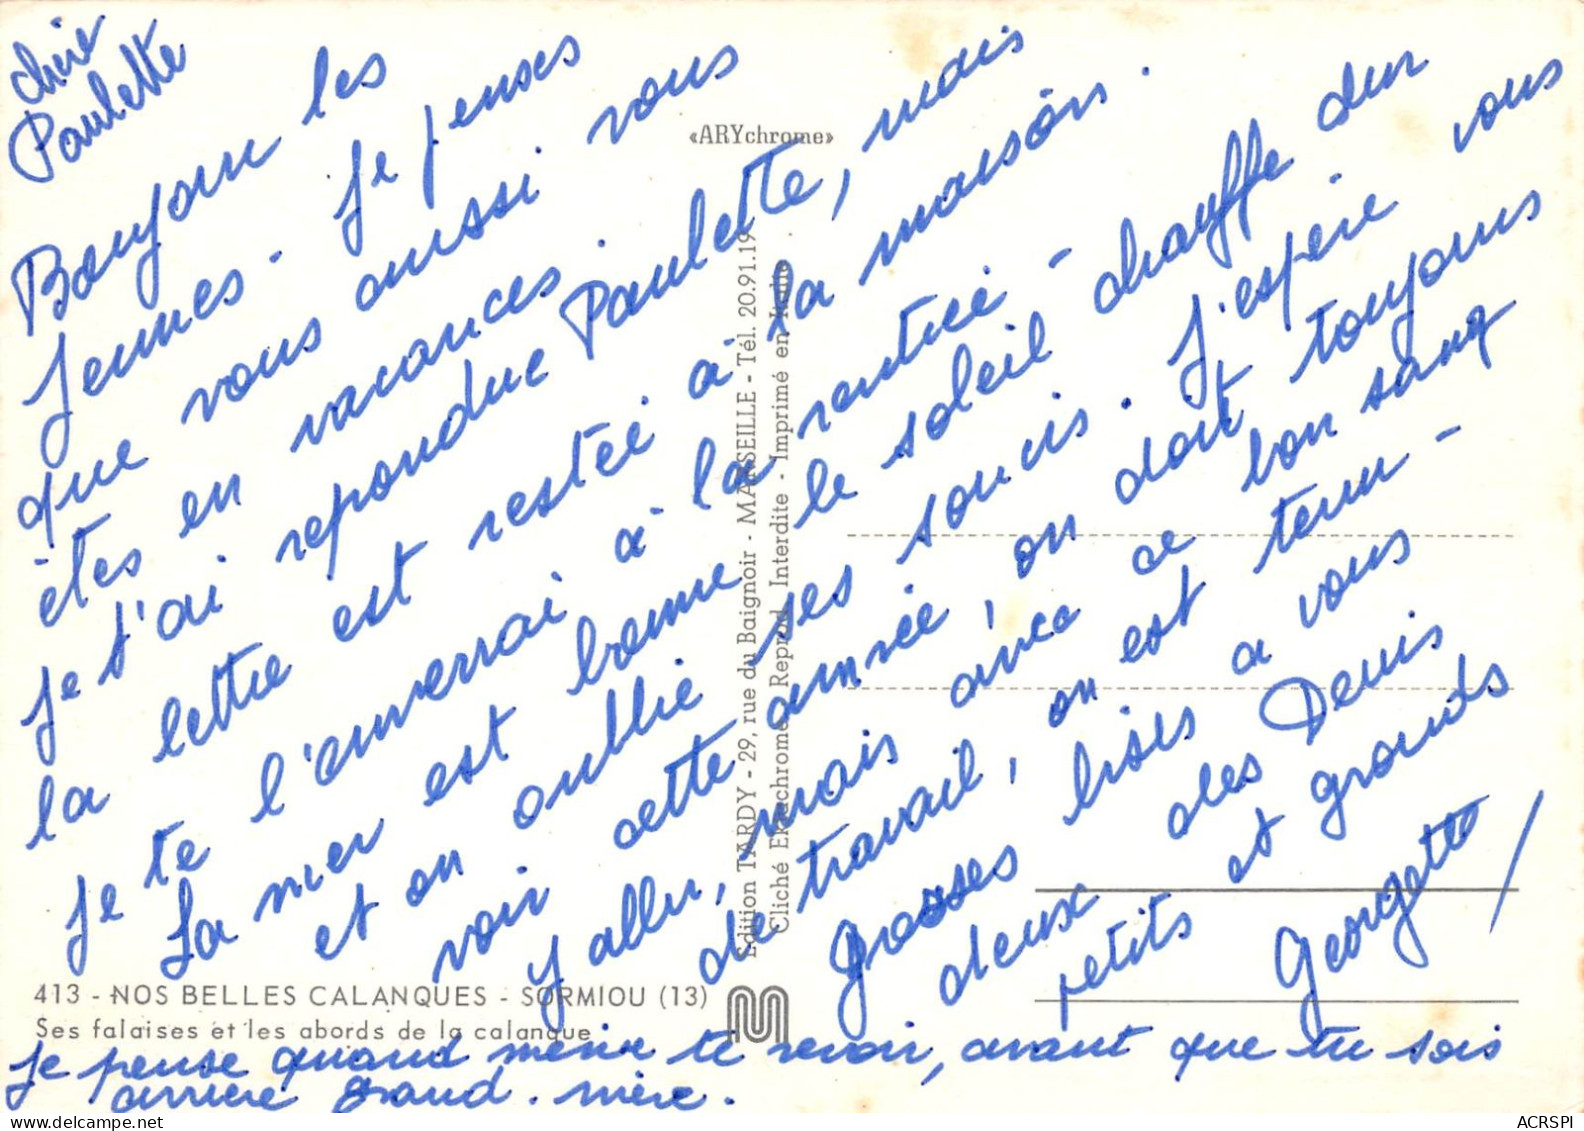 chère
Paulette
Bonjour les
jeunes - je penses
que vous aussi vous
êtes en vacances
je t'ai repondue Paulette, mais
la lettre est restée à la maison.
je te l'enverrai à la rentrée -
La mer est bonne le soleil chauffe dur
et on oublie ses soucis. J'espère vous
voir cette année, on doit toujours
y aller, mais avec ce bon sang
de travail, on est tenu -
grosses bises a vous
deux des Denis
petits et grands
Georgette
je pense quand même te revoir, avant que tu sois
arrière grand. mère.
«ARYchrome»
Edition TARDY - 29, rue du Baignoir - MARSEILLE - Tél. 20.91.19
Cliché Ektachrome Reprod. Interdite - Imprimé en Italie
413 - NOS BELLES CALANQUES - SORMIOU (13)
Ses falaises et les abords de la calanque
M
ACRSPI